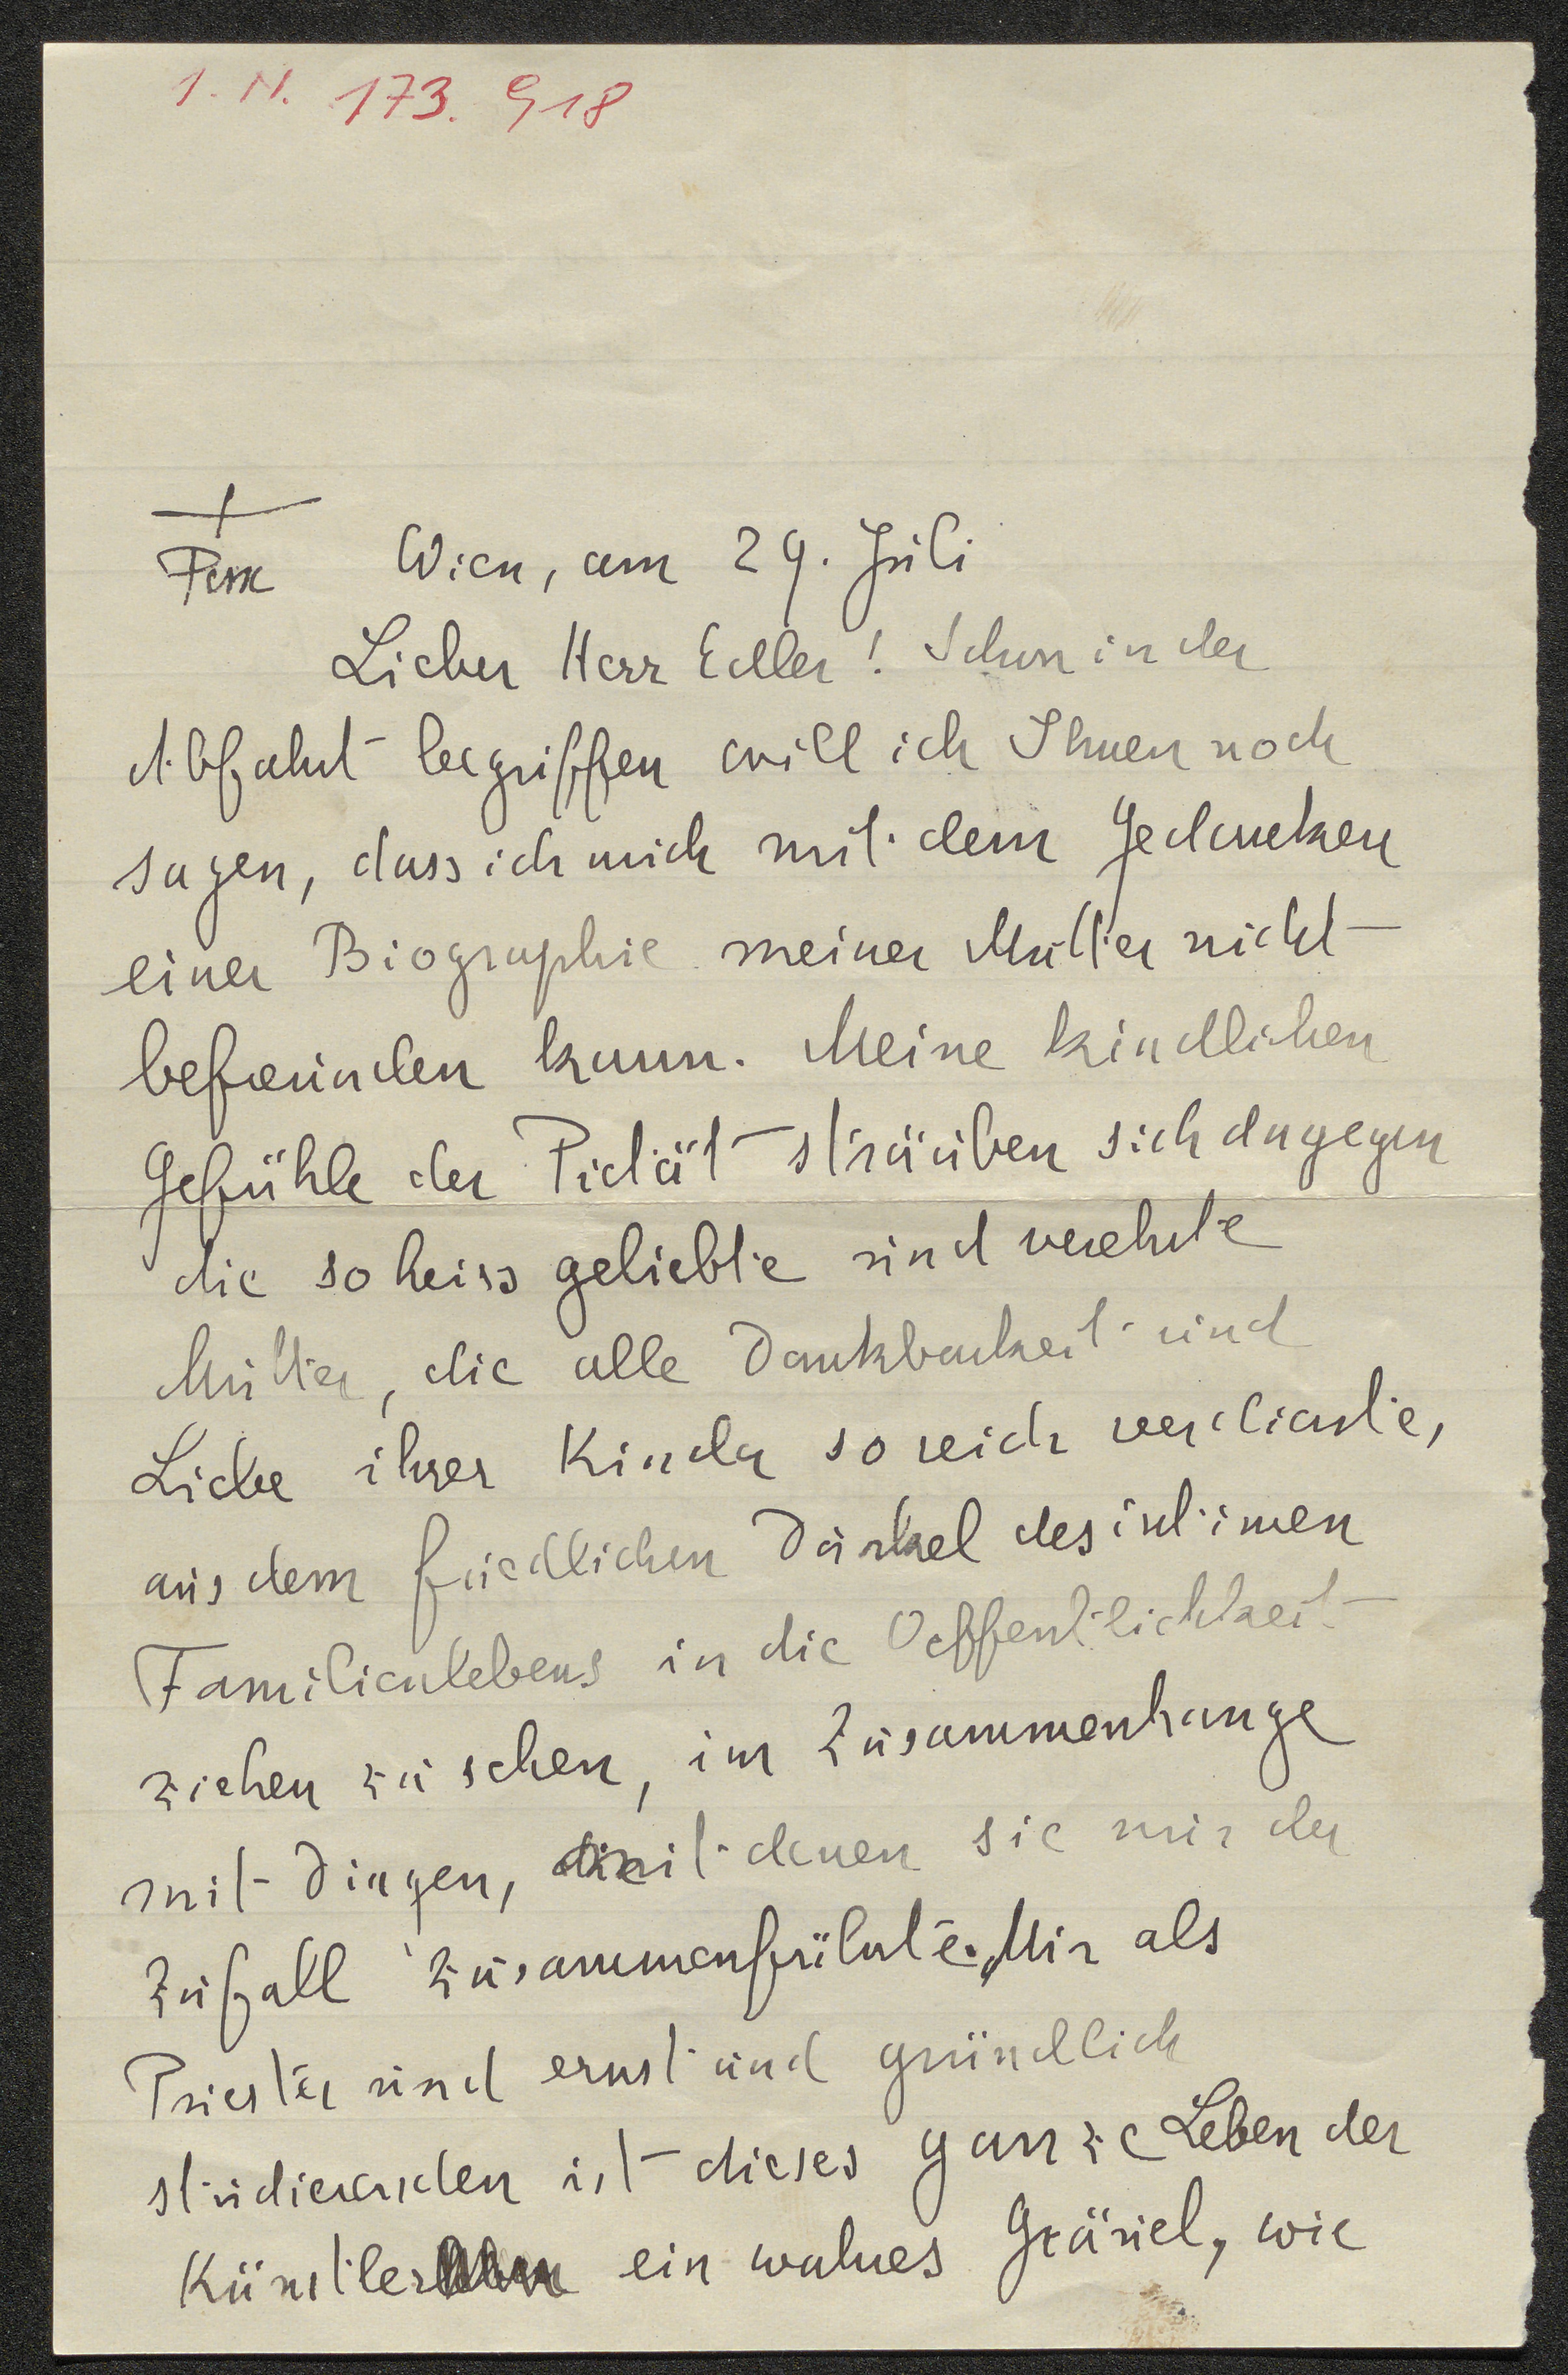 I. N. 173.918
Wien, am 29. Juli
Lieber Herr Edler! Schon in der
Abfahrt begriffen will ich Ihnen noch
sagen, dass ich mich mit dem Gedanken
einer Biographie meiner Mutter nicht
befreunden kann. Meine kindlichen
Gefühle der Pietät sträuben sich dagegen
die so heiss geliebte und verehrte
Mutter, die alle Dankbarkeit und
Liebe ihrer Kinder so reich verdiente,
aus dem friedlichen Dunkel des intimen
Familienlebens in die Oeffentlichkeit
ziehen zu sehen, im Zusammenhange
mit Dingen, mit denen sie nur der
Zufall zusammenführte. Mir als
Priester und ernst und gründlich
studierenden ist dieses ganze Leben der
Künstler ein wahres Gräuel, wie